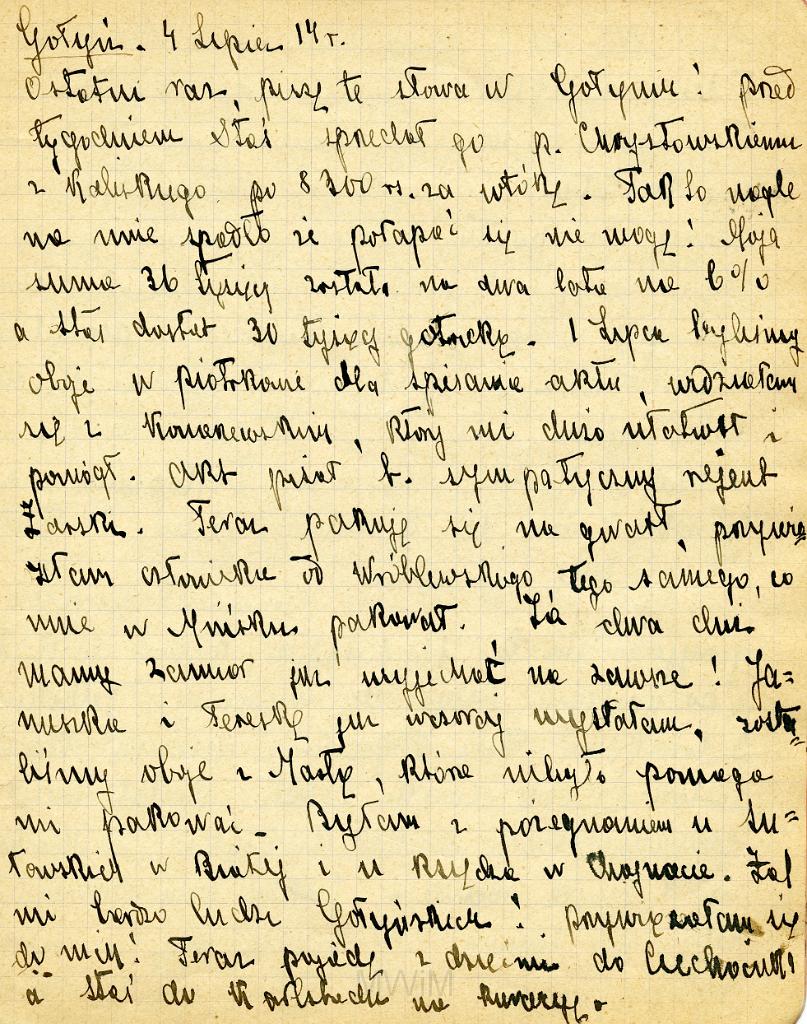 Gołyń. 4 Lipiec 14 r.
Ostatni raz, piszę te słowa w Gołyniu! przed
tygodniem Staś sprzedał go p. Chrystowskiemu
z Kaliskiego po 8300 rs. za włókę. Tak to nagle
na mnie spadło że połapać się nie mogę! Moja
suma 36 tysięcy została na dwa lata na 6%
a Staś dostał 30 tysięcy gotówką. 1 Lipca byliśmy
oboje w Piotrkowie dla spisania aktu, widziałam
się z Konarzewskim, który mi dużo ułatwił i
pomógł. Akt pisał b. sympatyczny rejent
Żarski. Teraz pakuję się na gwałt, przywio-
złam człowieka od Wróblewskiego tego samego, co
mnie w Mińsku pakował. Za dwa dni
mamy zamiar już wyjechać na zawsze! Ja-
nuszka i Tereskę już wczoraj wysłałam, zosta-
liśmy oboje z Martą, która niby to pomaga
mi pakować. Byłam z pożegnaniem u Su-
łowskich w Białej i u księdza w Chojnacie. Żal
mi bardzo ludzi Gołyńskich! przywiązałam się
do nich! Teraz pojadę z dziećmi do Ciechocinka
a Staś do Karlsbadu na kurację.
MWiM